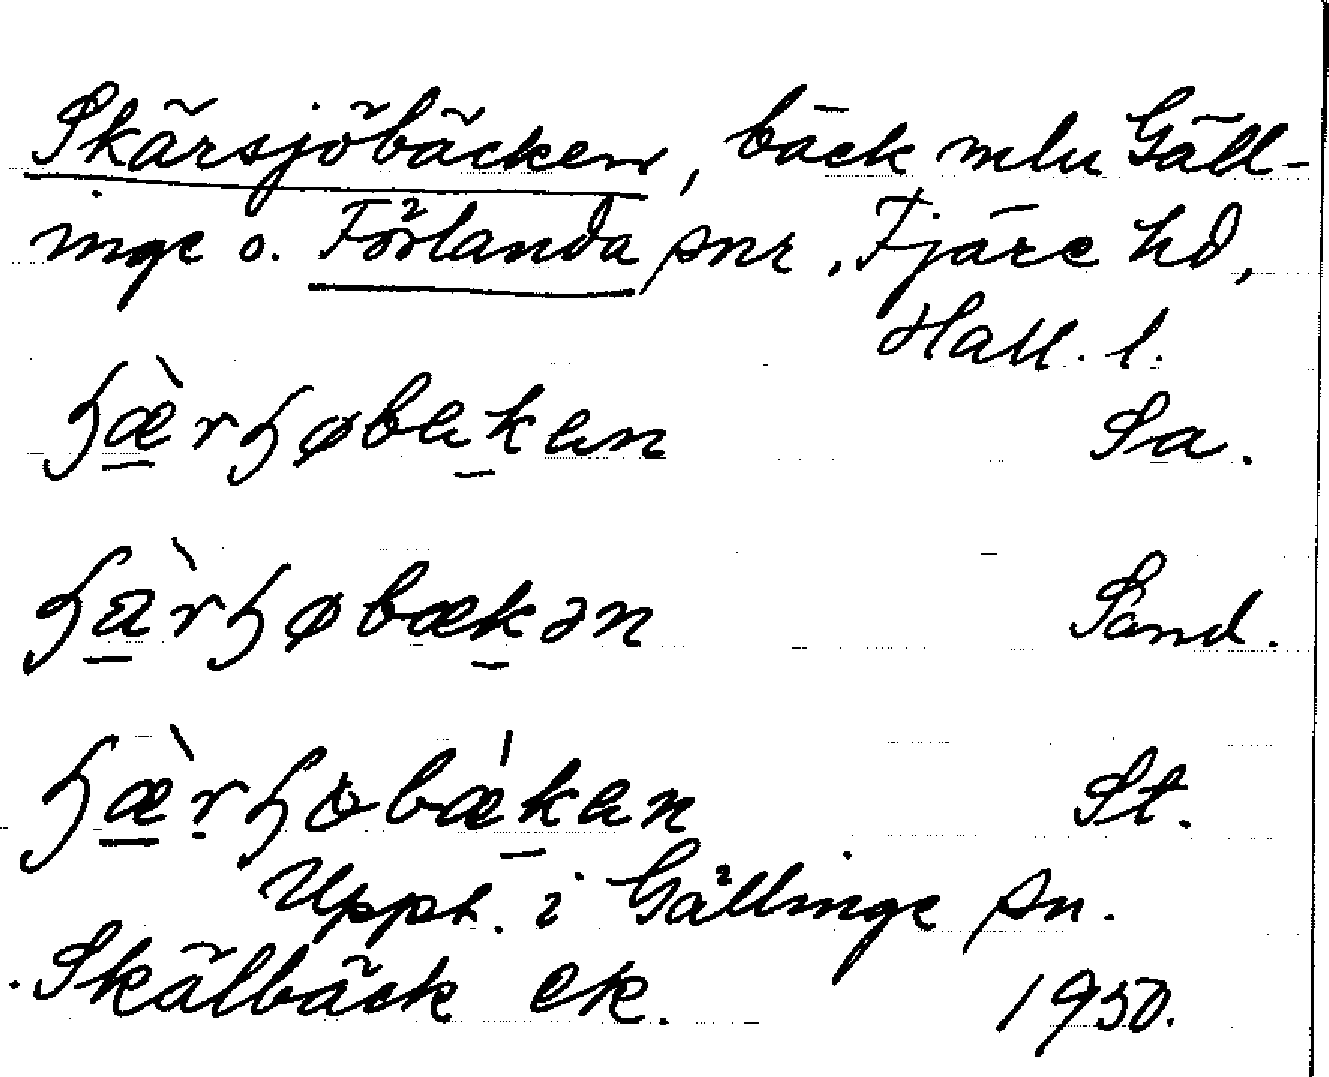 Skärsjöbäcken, bäck mlu Gäll-
inge o. Förlanda snr, Fjäre hd,
Hall. l.
ɧæ̀rɧøbakan Sa.
ɧàrɧøbækən Sand.
ɧæ̀rɧɵbǽkan St.
Uppt. i Gällinge sn.
Skälbäck ek. 1950.